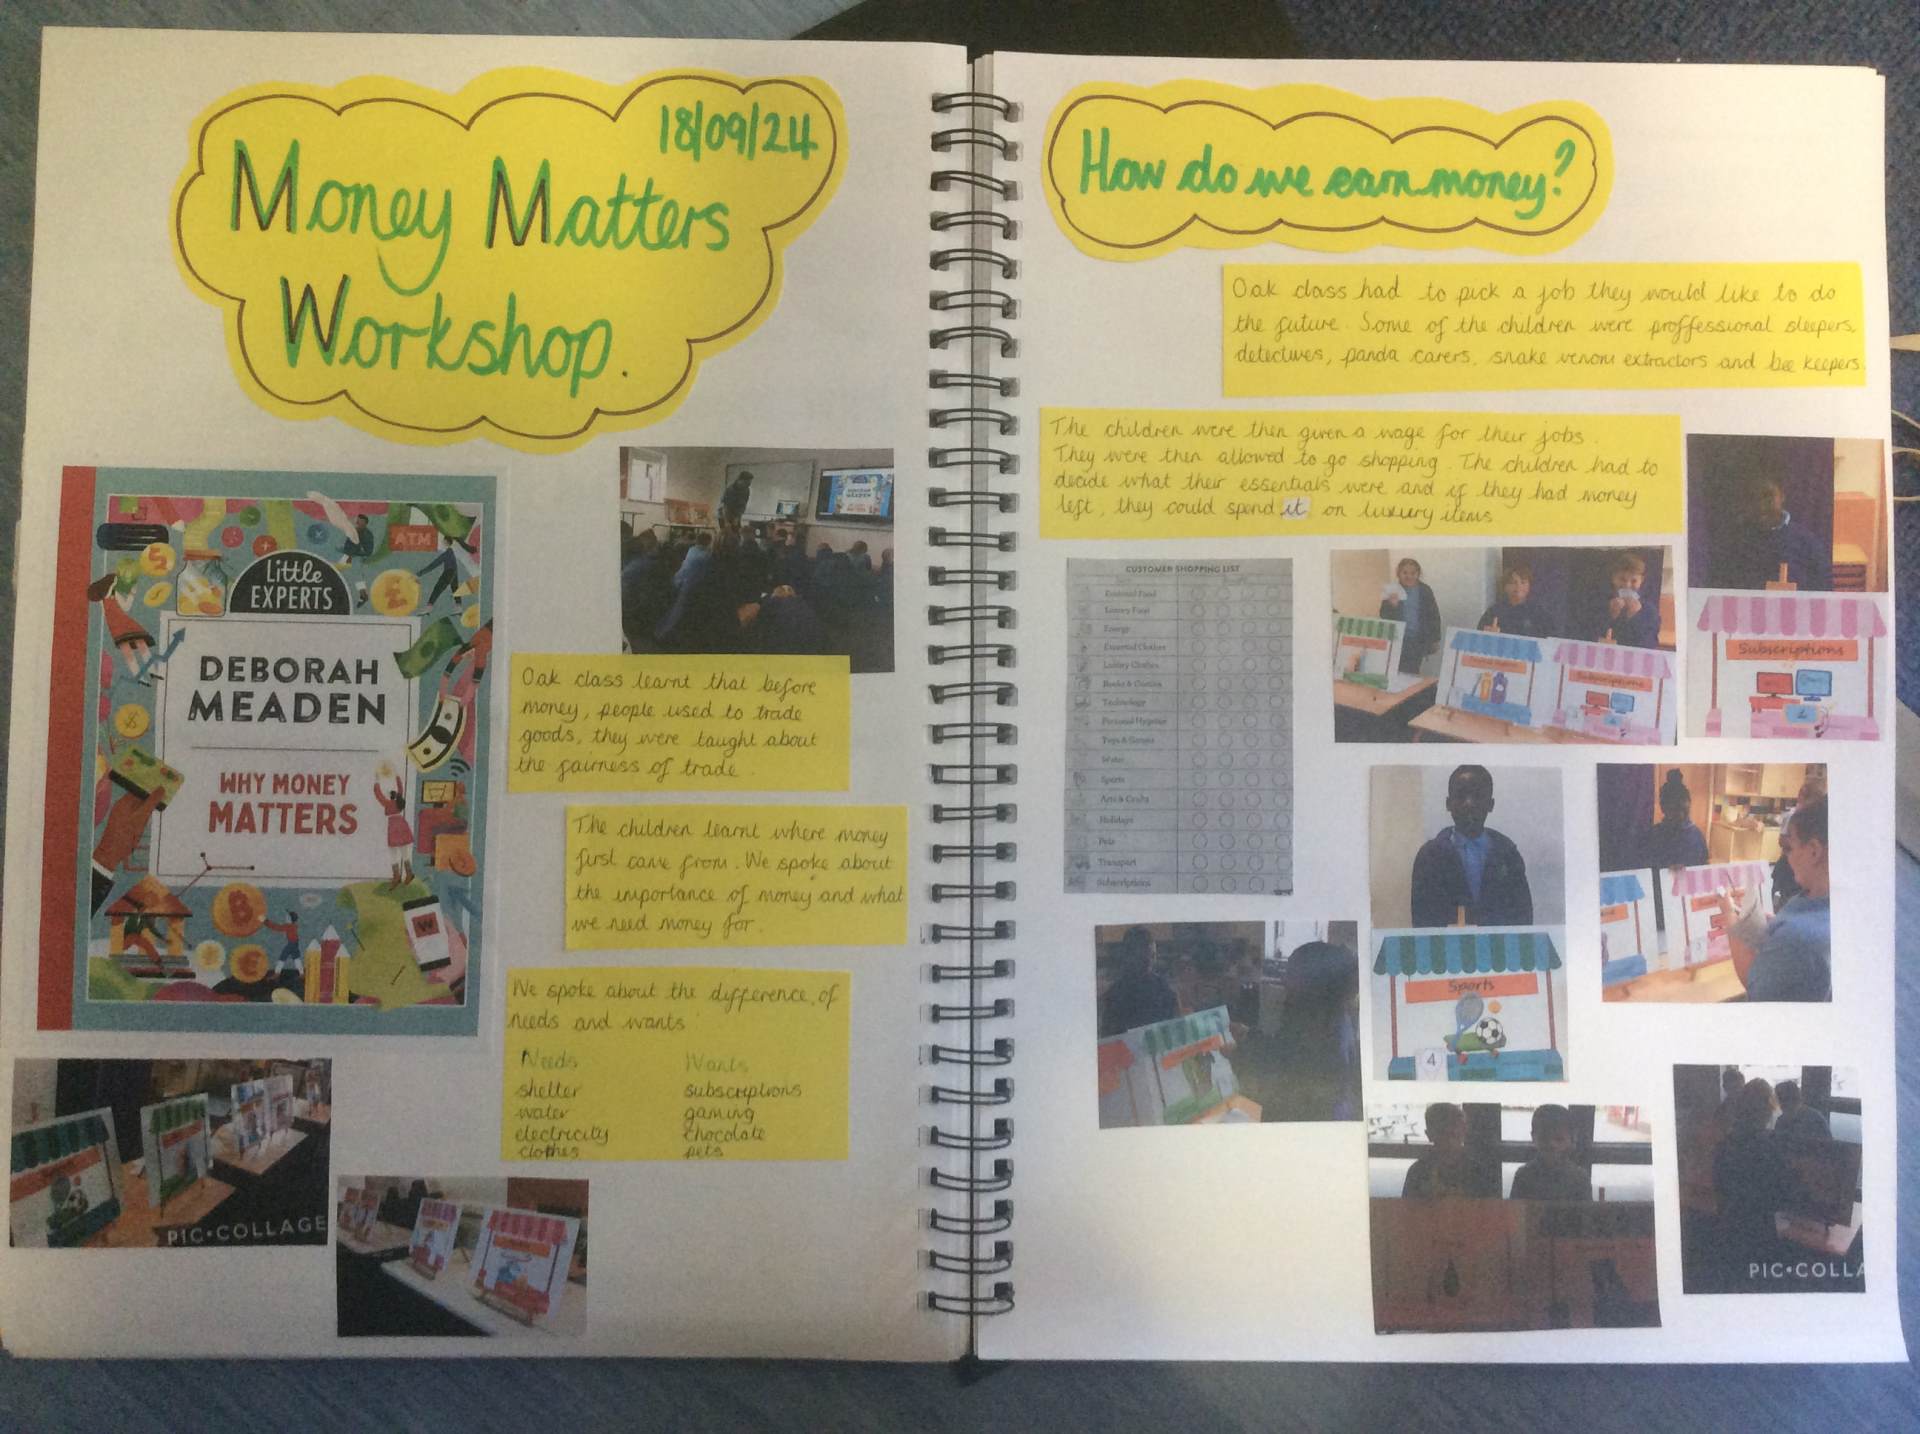 18/09/24
Money Matters
Workshop.
Little
EXPERTS
ATM
DEBORAH
MEADEN
WHY MONEY
MATTERS
W
DEBORAH
MEADEN
Oak class learnt that before
money, people used to trade
goods, they were taught about
the fairness of trade.
The children learnt where money
first came from. We spoke about
the importance of money and what
we need money for.
We spoke about the difference of
needs and wants
Needs Wants
shelter subscriptions
water gaming
electricity chocolate
clothes pets
PIC•COLLAGE
How do we earn money?
Oak class had to pick a job they would like to do
the future. Some of the children were proffessional sleepers,
detectives, panda carers, snake venom extractors and bee keepers.
The children were then given a wage for their jobs.
They were then allowed to go shopping. The children had to
decide what their essentials were and if they had money
left, they could spend it on luxury items
CUSTOMER SHOPPING LIST
Essential Food
Luxury Food
Energy
Essential Clothes
Luxury Clothes
Books & Comics
Technology
Personal Hygiene
Toys & Games
Water
Sports
Arts & Crafts
Holidays
Pets
Transport
Subscriptions
Subscriptions
Subscriptions
Sports
4
PIC•COLLA